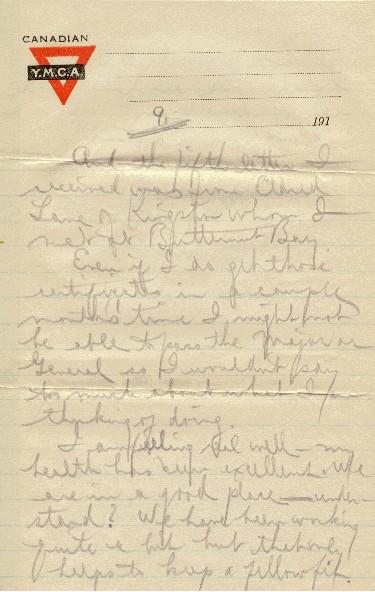 CANADIAN
Y.M.C.A.
9.
191
And the fifth letter I
received was from Oldred
Lane of Kingston whom I
met at Butternut Bay
Even if I do get those
certificates in a couple
months' time I might not
be able to pass the Major or
General so I wouldn't say
to much about what I am
thinking of doing.
I am feeling well - my
health has been excellent. We
are in a good place - under-
stand? We have been working
quite a bit but that only
helps to keep a fellow fit.